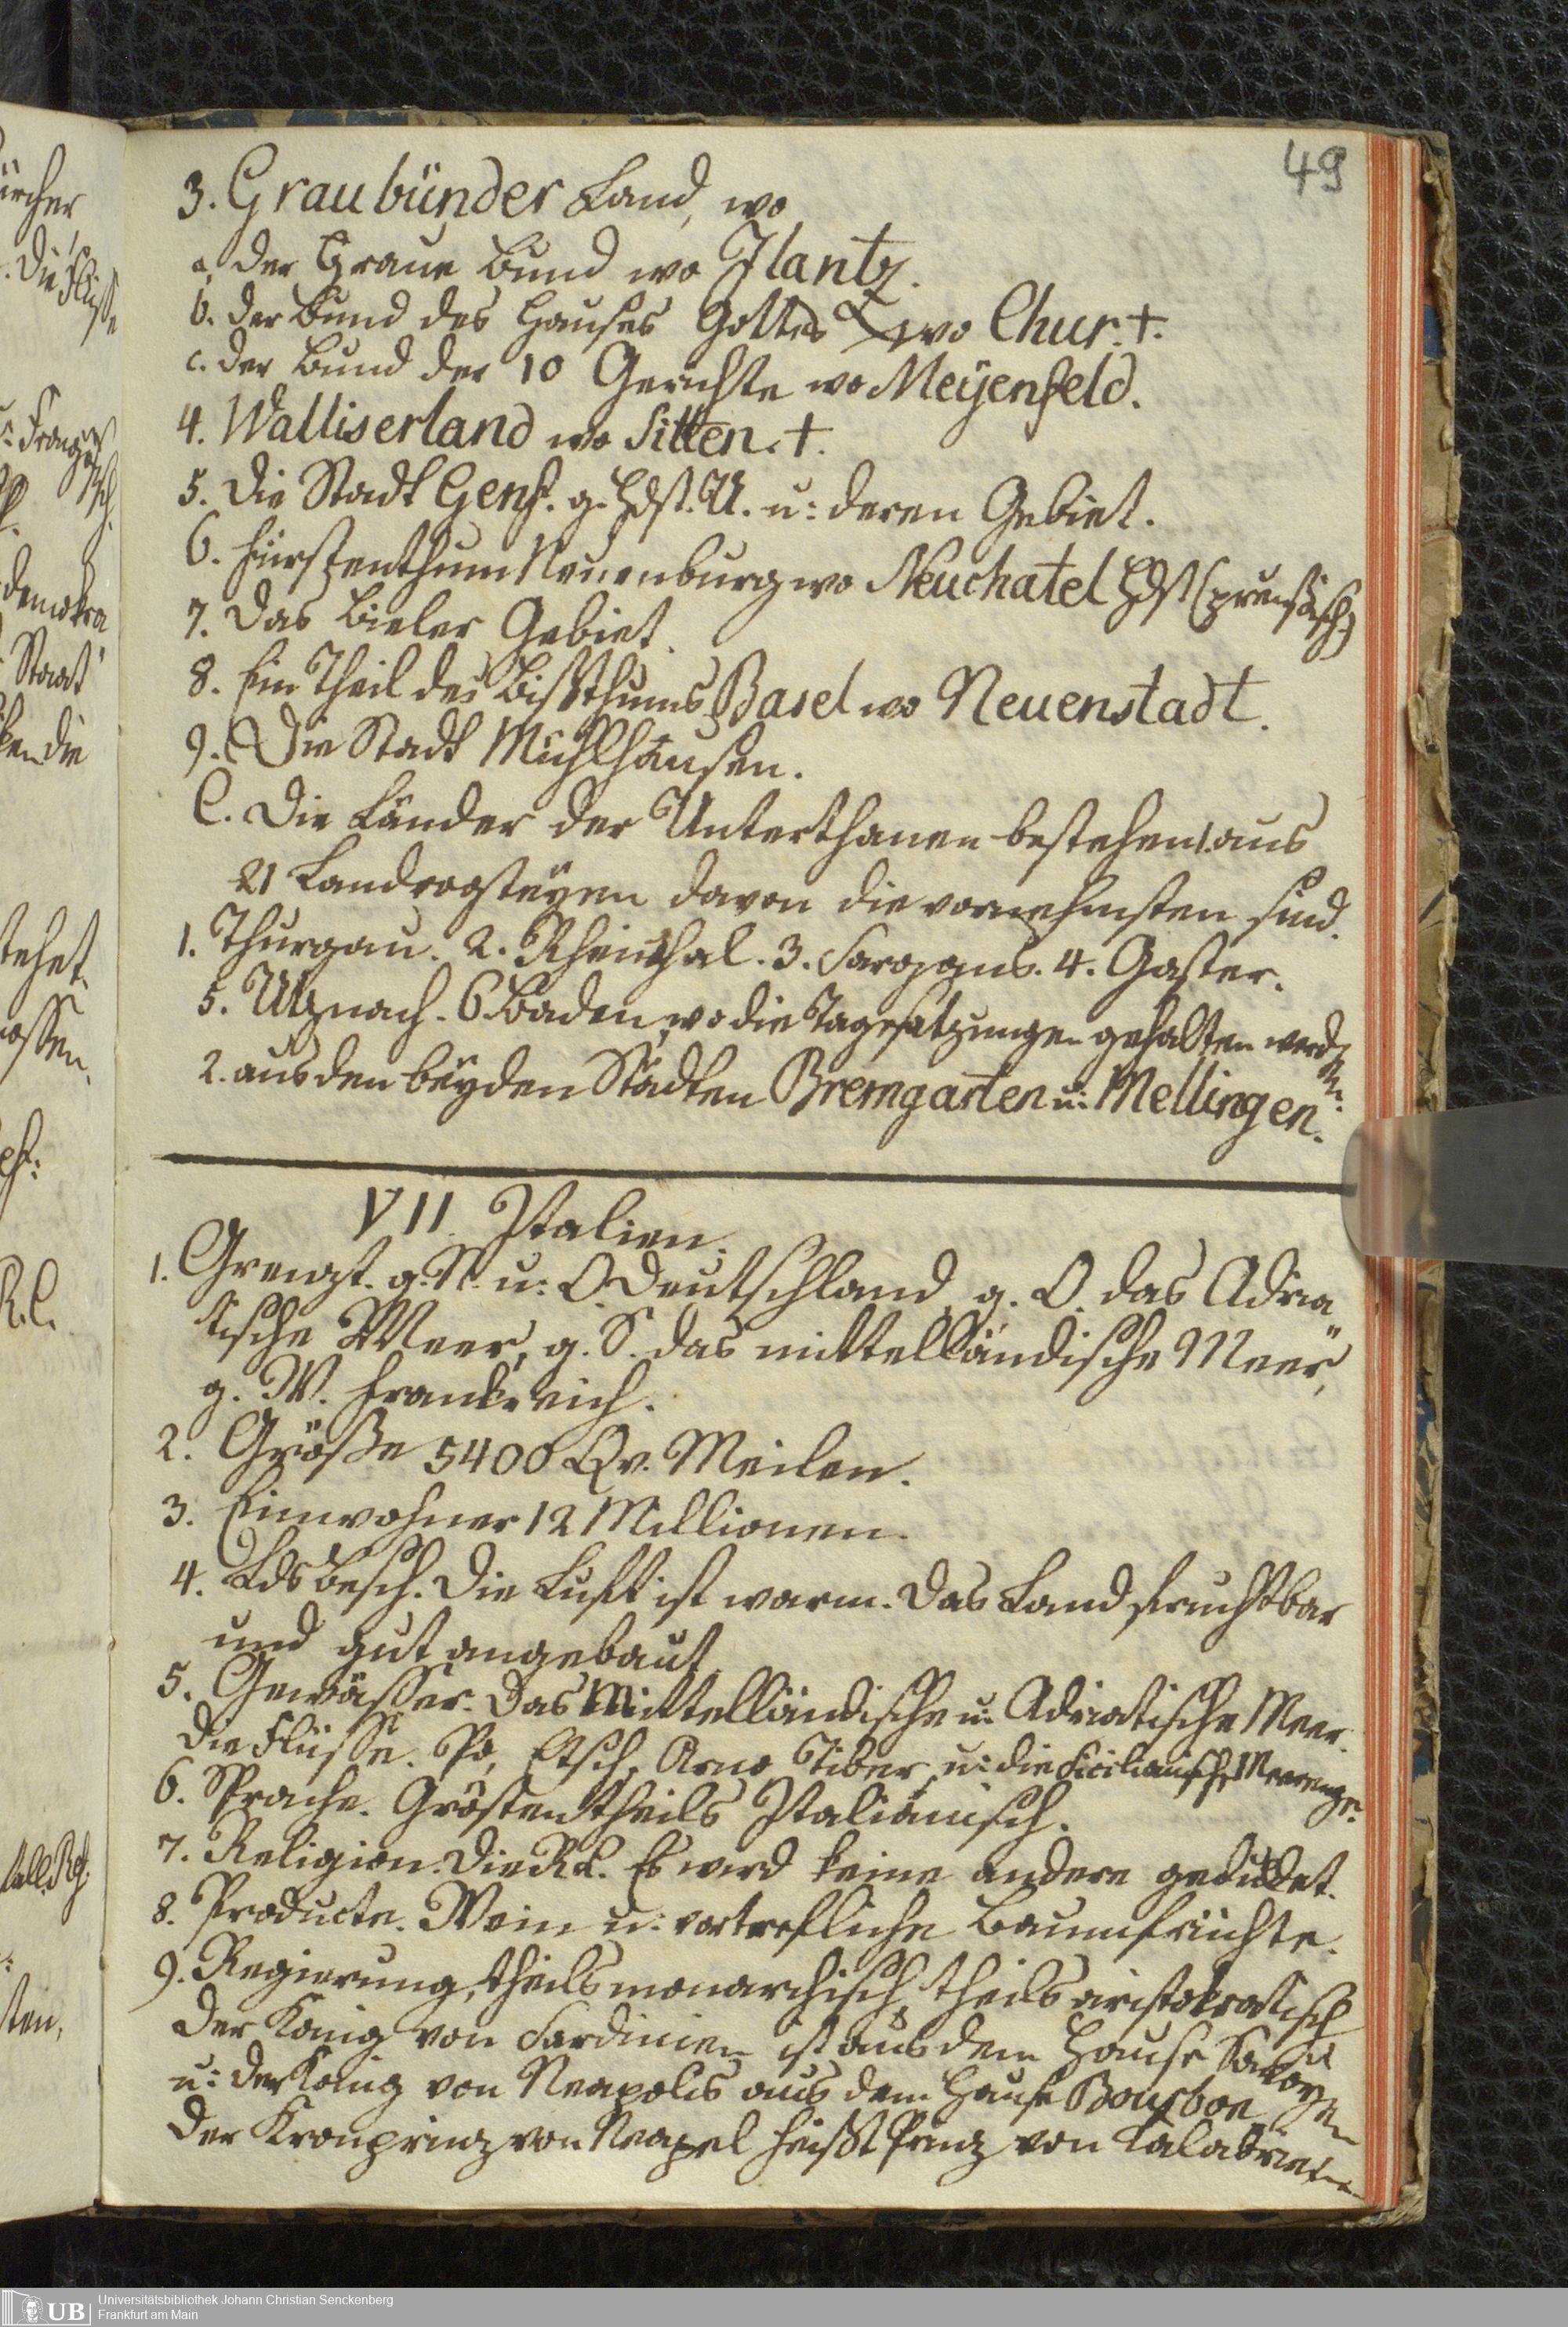 49
3. Graubünder Land, wo
a, der Graue Bund wo Jlantz.
b. der Bund des Hauses Gottes wo Chur. †.
c. der Bund der 10 Gerichte wo Meÿenfeld.
4. Walliserland wo Sitten. †.
5. Die Stadt Genf. g. Hdst. U. u: deren Gebiet.
6. Fürstenthum Neuenburg wo Neuchatel Hdst (preusisch)
7. Das Bieler Gebiet.
8. Ein Theil des Bißthums Basel wo Neuenstadt.
9. Die Stadt Mühlhausen.
C. Die Länder der Unterthanen bestehen 1. aus
21 Landvogteÿen davon die vornehmsten sind.
1. Thurgau. 2. Rheinthal. 3. Sargans. 4. Gaster.
5. Utznach. 6 Baden, wo die Tagesatzungen gehalten werden.
2. aus den beÿden Städten Bremgarten u: Mellingen.
VII. Italien.
1. Grenzt. g. N. u: O Deutschland, g. O. das Adria„
tische Meer, g. S. das mittelländische Meer,
g. W. Frankreich.
2. Größe 5400 Qv. Meilen.
3. Einwohner 12 Millionen.
4. Lds Besch. Die Luft ist warm. Das Land fruchtbar
und gut angebaut.
5. Gewässer. Das Mittelländische u: Adriatische Meer.
Die Flüsse. Po, Etsch, Arno Tiber, u: die Sicilianische Meerenge.
6. Sprache. Gröstentheils Italiänisch.
7. Religion. Die RK. Es wird keine andere geduldet.
8. Producte. Wein u: vortrefliche Baumfrüchte.
9. Regierung, theils monarchisch, theils aristokratisch
Der König von Sardinien ist aus dem Hause Savoyen
u: der König von Neapolis aus dem Hause Bourbon
Der Kronprinz von Neapel heißt Prinz von Kalabrien
Universitätsbibliothek Johann Christian Senckenberg
Frankfurt am Main
UB